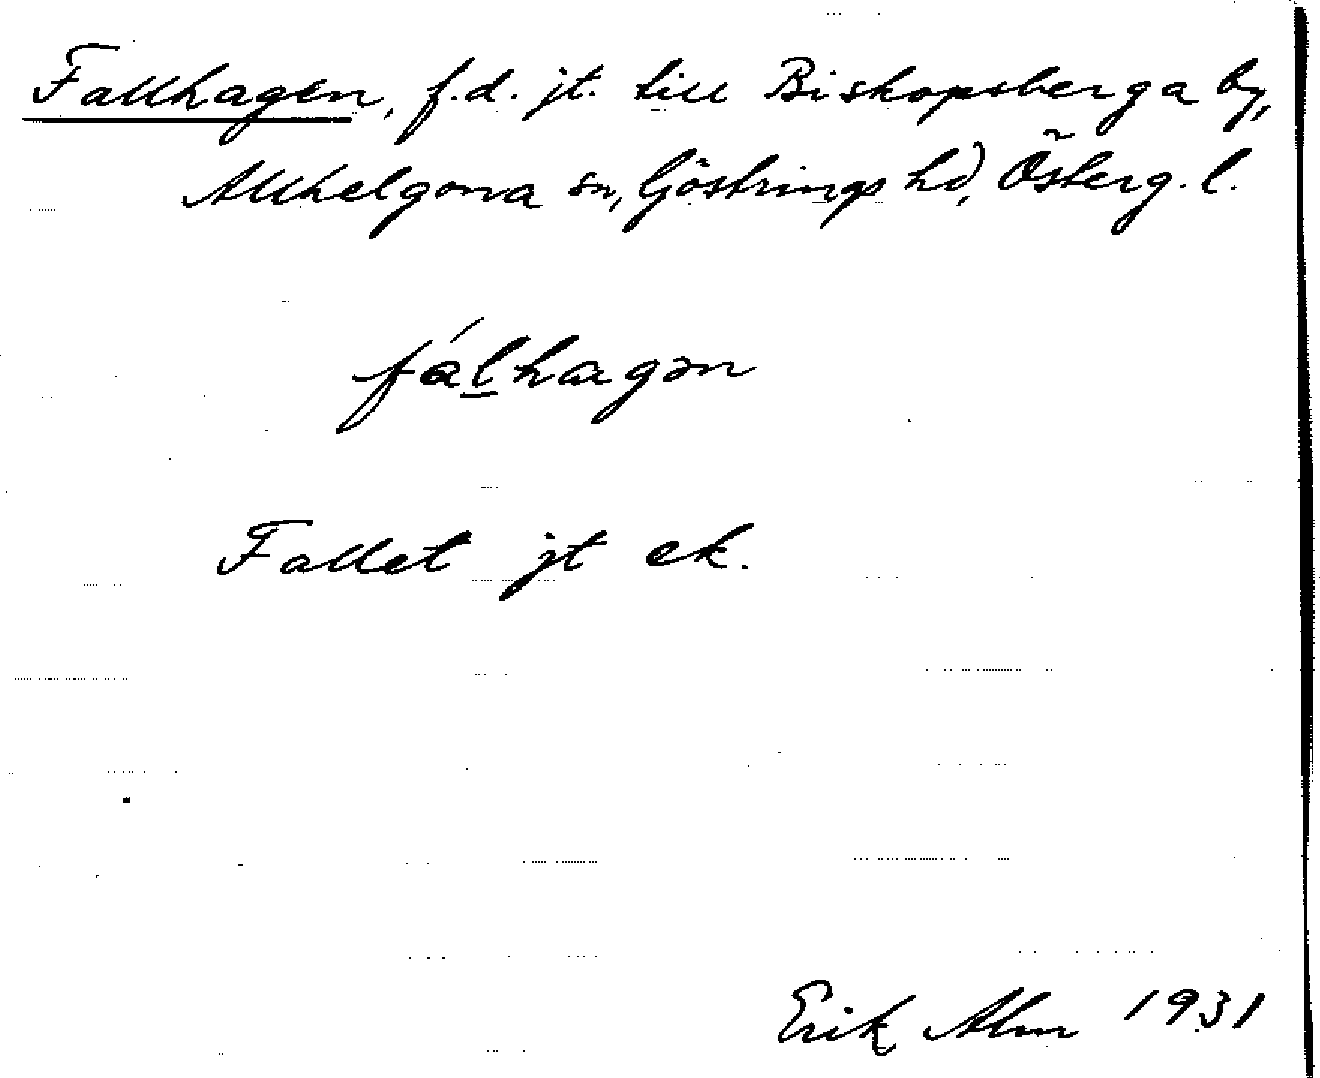 Fallhagen, f.d. jt. till Biskopsberga by,
Allhelgona sn, Göstrings hd, Österg. l.
fálhagən
Fallet jt ek.
Erik Alm 1931